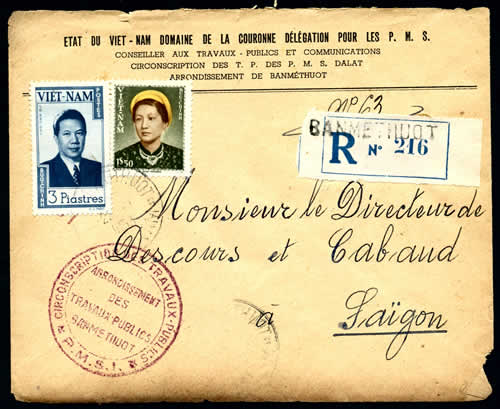 ETAT DU VIET-NAM DOMAINE DE LA COURONNE DÉLÉGATION POUR LES P. M. S.
CONSEILLER AUX TRAVAUX-PUBLICS ET COMMUNICATIONS
CIRCONSCRIPTION DES T. P. DES P. M. S. DALAT
ARRONDISSEMENT DE BANMÉTHUOT
VIÊT-NAM
POSTES
BUU-CHINH
3 Piastres
VIÊT-NAM
1$50
Nº 63
BANMETHUOT
R Nº 216
Monsieur le Directeur de
Descours et Cabaud
à Saïgon
CIRCONSCRIPTION DES TRAVAUX-PUBLICS
ARRONDISSEMENT
DES
TRAVAUX PUBLICS
BANMETHUOT
P.M.S.I.